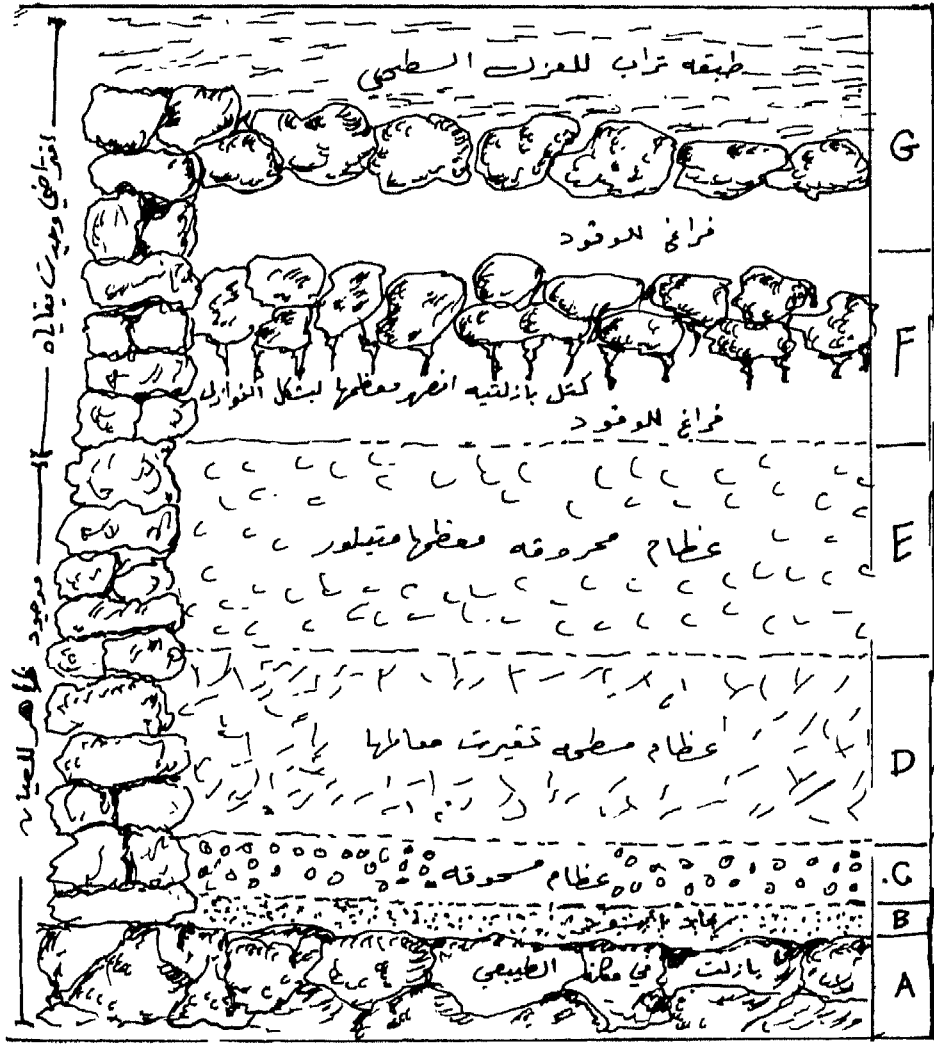 طبقه تراب للعزل السطحي
G
فراغ للوقود
F
كتل بازلتيه انصهر معظمها بشكل النوازل
فراغ للوقود
عظام محروقه معظمها متبلور
E
عظام مسطحه تغيرت معالمها
D
عظام مسحوقه
C
رماد
B
بازلت في مكانه الطبيعي
A
افتراضي وجدت بقاياه
موجود
ظاهر للعيان